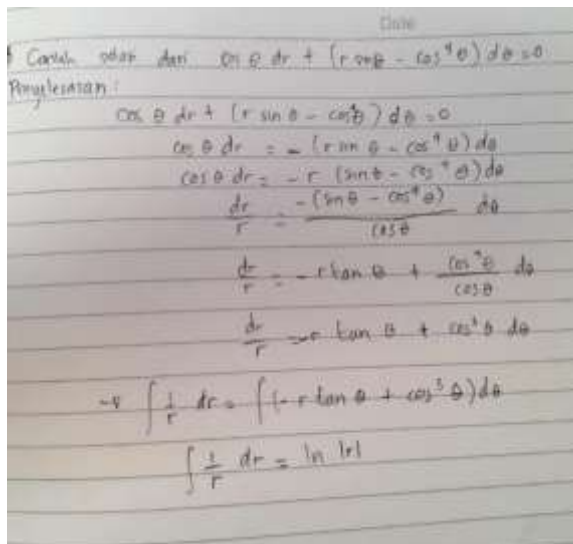 Date
Contoh soal dari cos θ dr + (r sin θ - cos⁴ θ) dθ = 0
Penyelesaian :
cos θ dr + (r sin θ - cos⁴ θ) dθ = 0
cos θ dr = - (r sin θ - cos⁴ θ) dθ
cos θ dr = - r (sin θ - cos⁴ θ) dθ
dr/r = -(sin θ - cos⁴ θ)/cos θ dθ
dr/r = - r tan θ + cos⁴ θ/cos θ dθ
dr/r = -r tan θ + cos³ θ dθ
∫ 1/r dr = ∫ (- r tan θ + cos³ θ) dθ
∫ 1/r dr = ln |r|